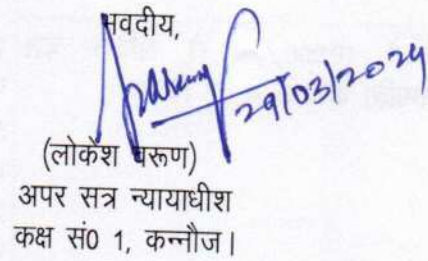 भवदीय,
29/03/2024
(लोकेश वरूण)
अपर सत्र न्यायाधीश
कक्ष सं0 1, कन्नौज।